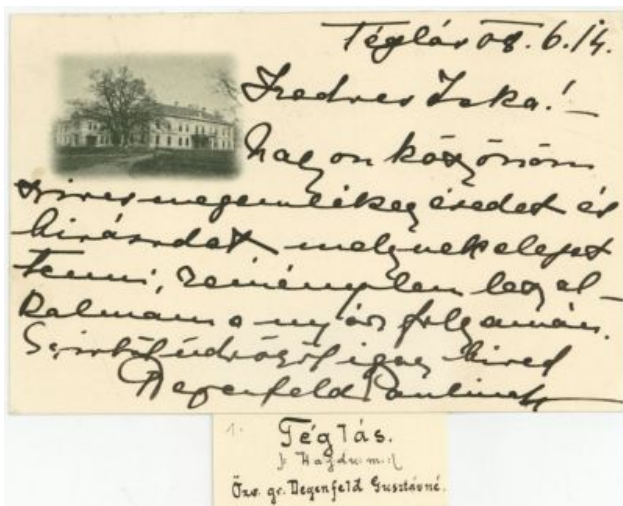 Téglás 08. 6./14.
Kedves Iska!–
Nagyon köszönöm
szives megemlékezésedet és
kivánsodat melynek eleget
tenni, reménylem lesz al–
kalmam a nyár folyamán.
Szivből üdvözöl igaz hived
Degenfeld Paulina
1. Téglás.
(: Hajdu m. :)
Özv. gr. Degenfeld Gusztávné.